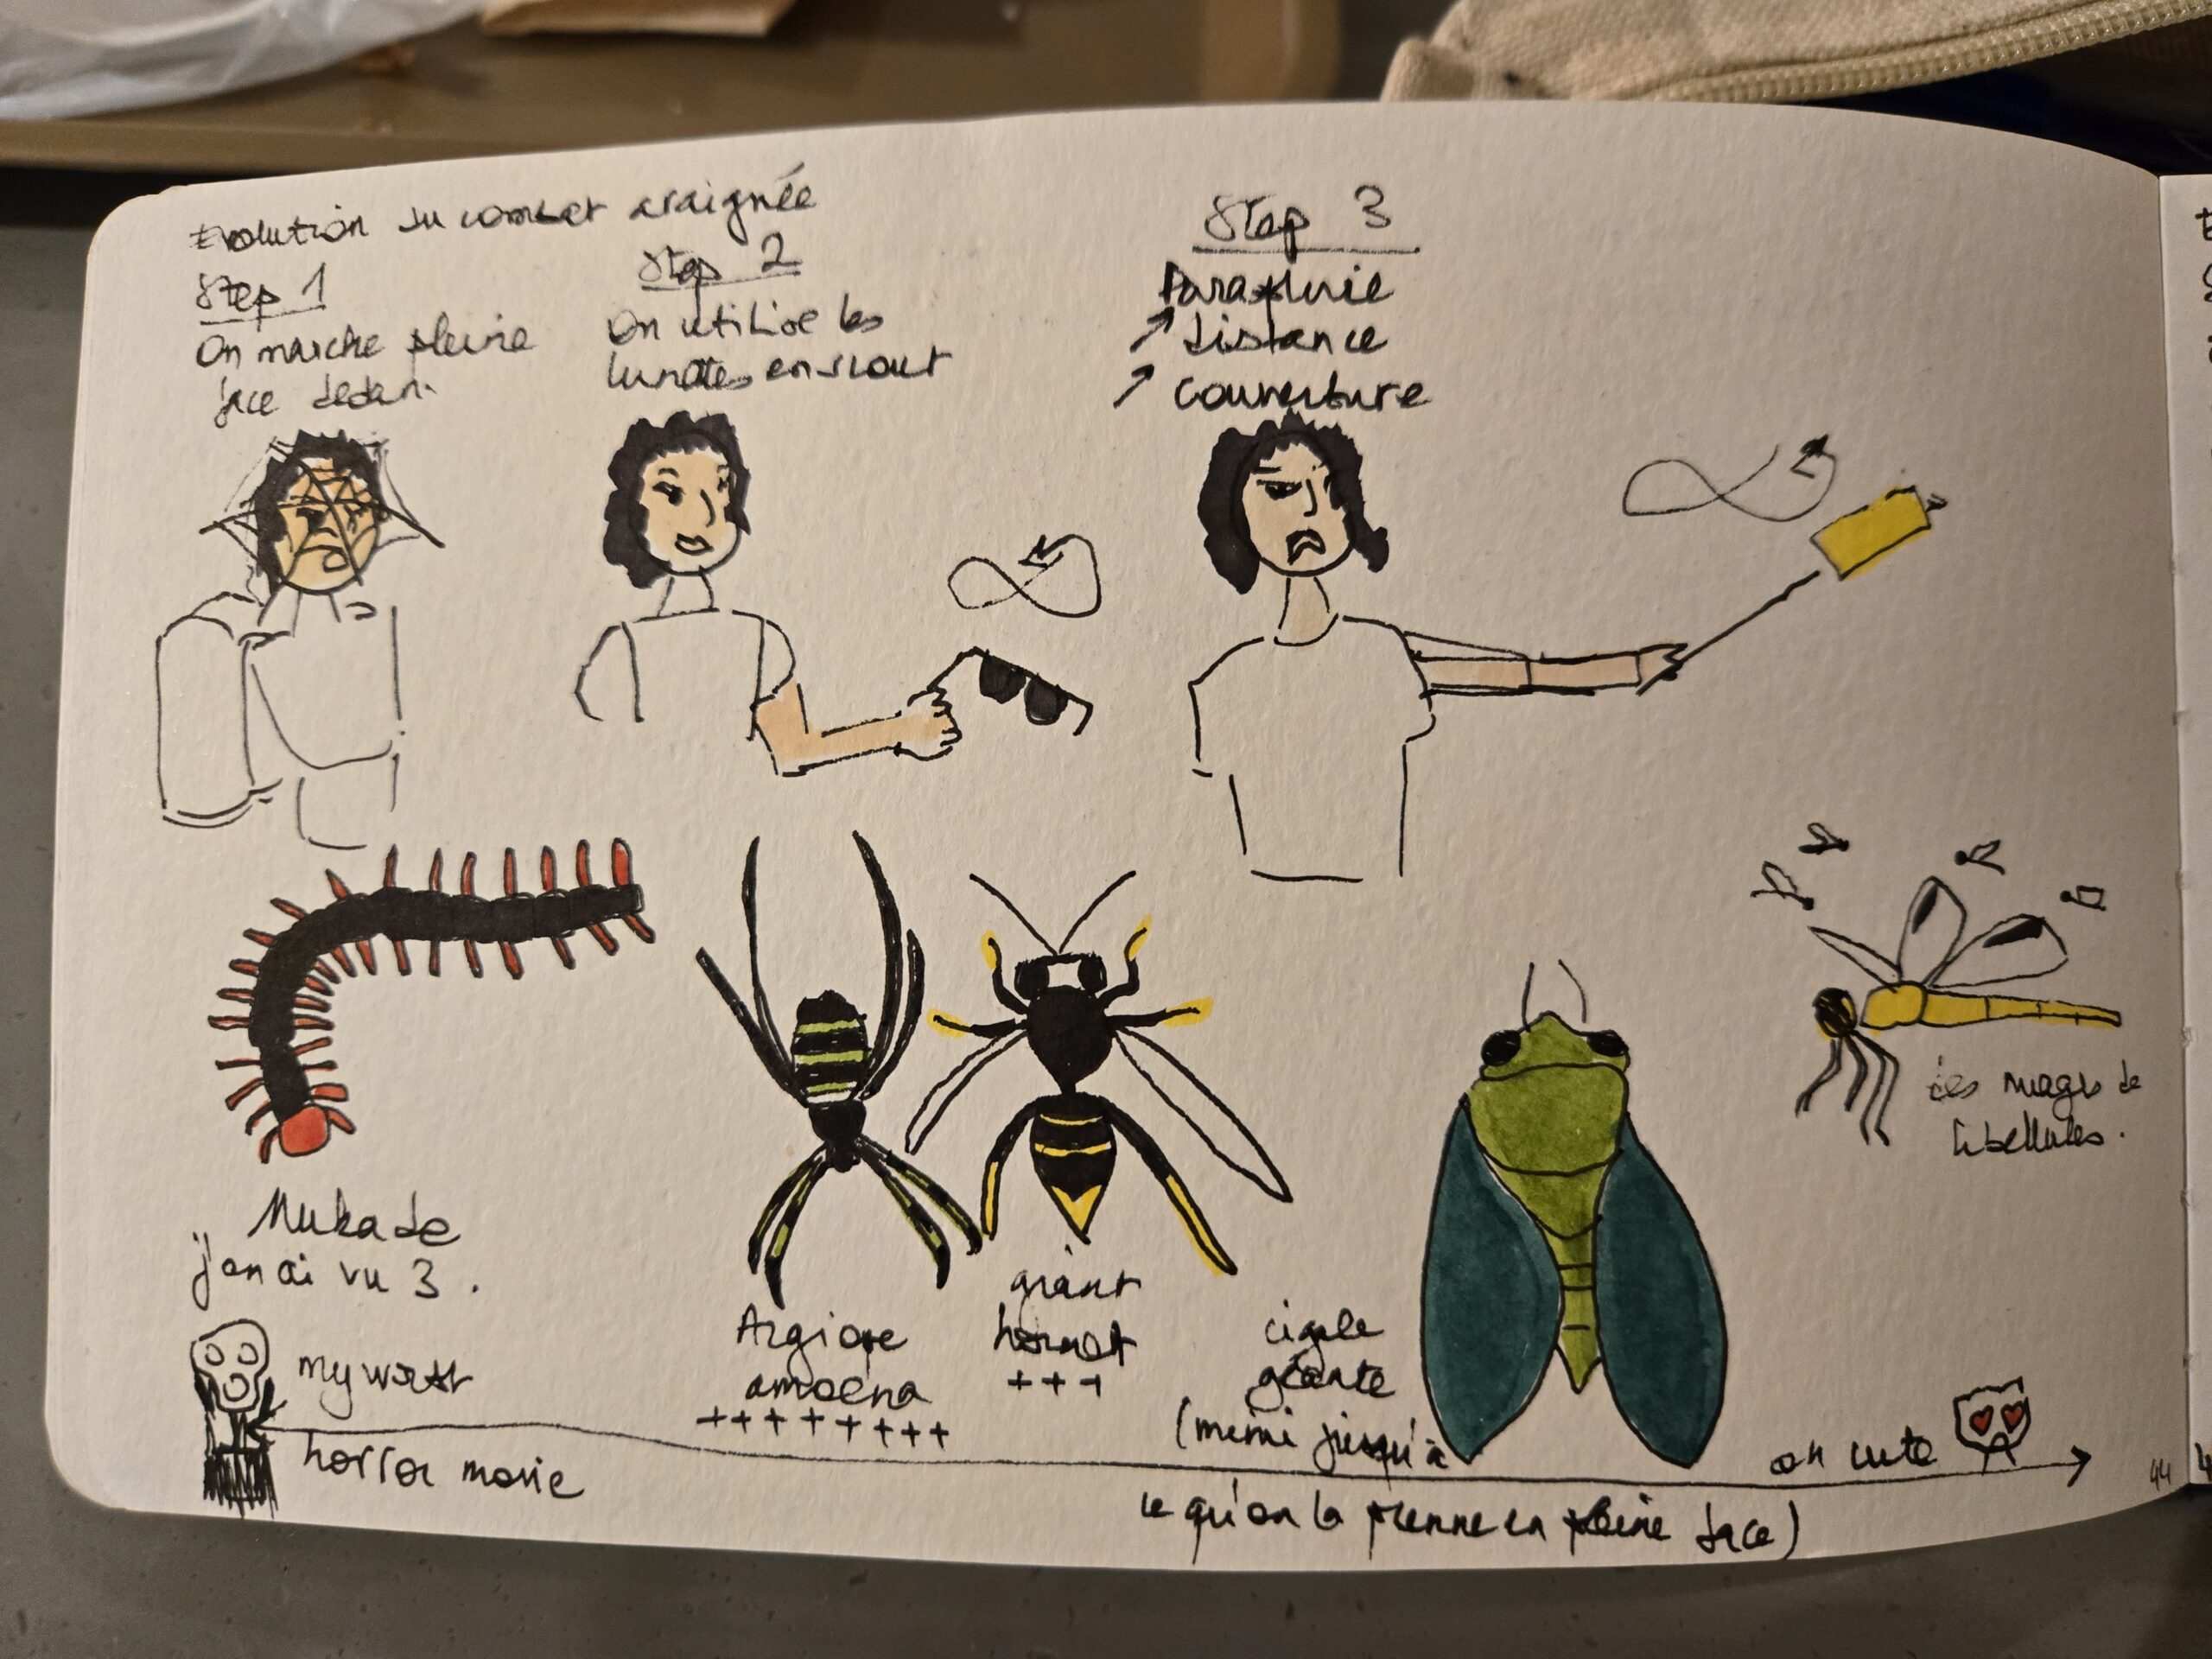 Evolution du combat araignée
Step 1
On marche pleine
face dedans
Step 2
On utilise les
lunettes en scout
Step 3
Parapluie
↗ distance
↗ couverture
Mukade
j'en ai vu 3.
Argiope
amoena
++++++++
giant
hornet
+++
cigale
géante
(mimi jusqu'à
ce qu'on la prenne en pleine face)
des nuages de
libellules.
my worst
horror movie
oh cute
44